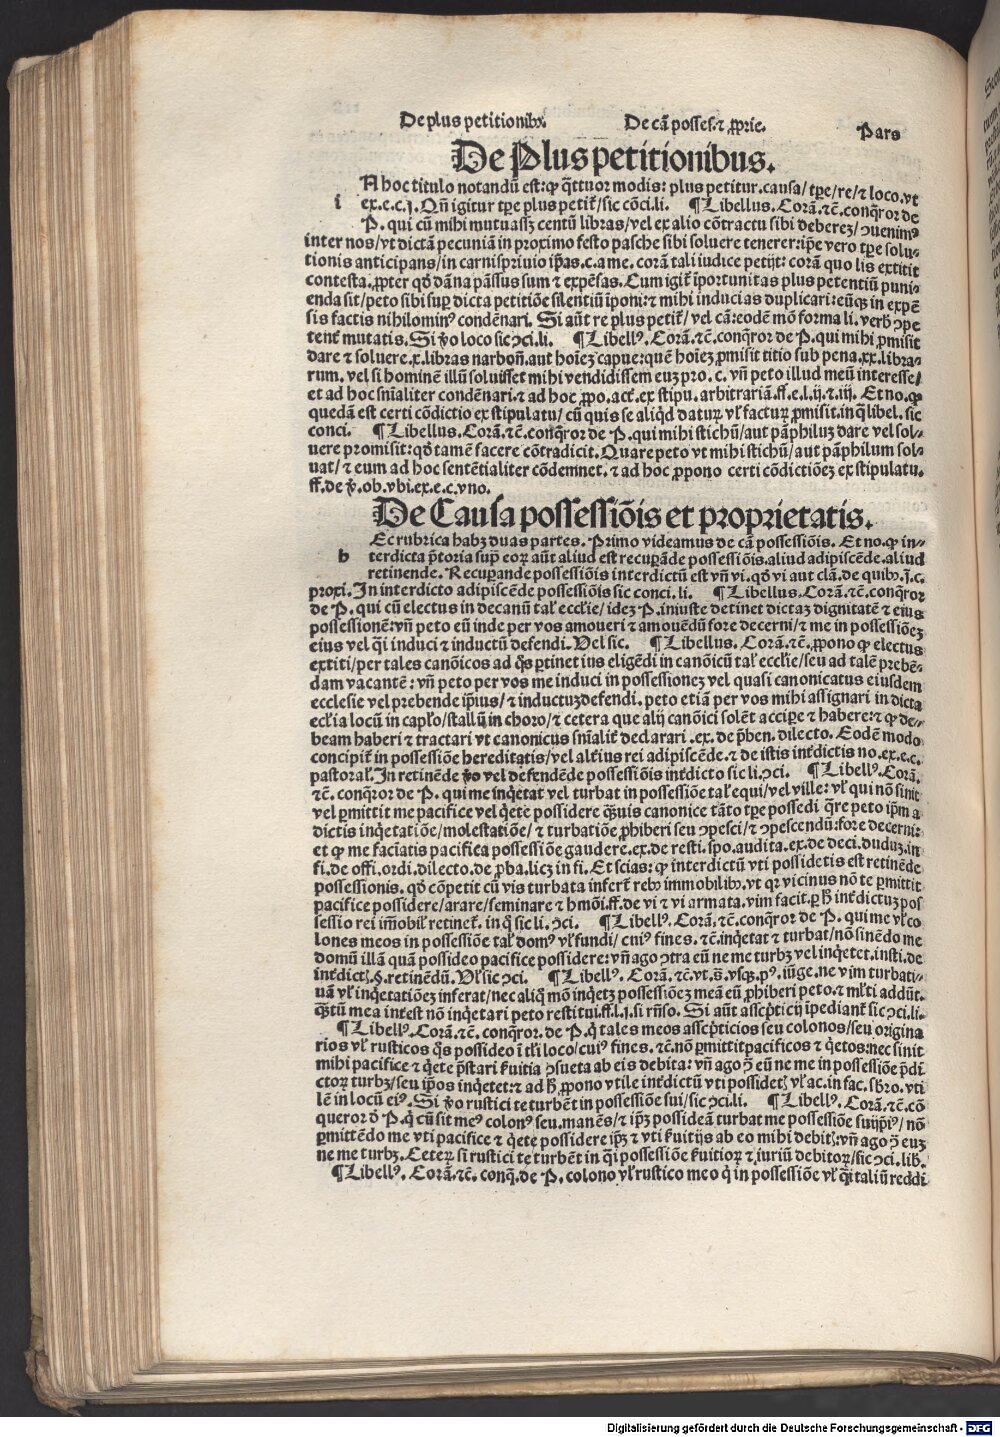 De plus petitionibꝰ. De cã posses. ⁊ ꝓprie. Pars
De Plus petitionibus.
N hoc titulo notandũ est: ꝙ q̃ttuor modis: plus petitur. causa/ tꝑe/ re/ ⁊ loco. vt
i ex. e. c. j. Qñ igitur tꝑe plus petit᷑/ sic cõci. li. ¶ Libellus. Corã. ⁊c̃. conq̃ror de
P. qui cũ mihi mutuassꝫ centũ libras/ vel ex alio cõtractu sibi debereꝫ/ ꝯuenimꝰ
inter nos/ vt dictã pecuniã in proximo festo pasche sibi soluere tenerer: ip̃e vero tꝑe solu⸗
tionis anticipans/ in carnispriuio ip̃as. c. a me. corã tali iudice petijt: corã quo lis extitit
contesta. ꝓpter qđ dãna pãssus sum ⁊ expẽsas. Cum igit᷑ ĩportunitas plus petentiũ puni⸗
enda sit/ peto sibi suꝑ dicta petitiõe silentiũ ĩponi: ⁊ mihi inducias duplicari: eũqꝫ in expẽ
sis factis nihilominꝰ condẽnari. Si aũt re plus petit᷑/ vel cã: eodẽ mõ forma li. verb̃ ꝯpe
tent᷑ mutatis. Si v̊o loco sic ꝯci. li. ¶ Libellꝰ. Corã. ⁊c̃. conq̃ror de P. qui mihi ꝓmisit
dare ⁊ soluere. x. libras narboñ. aut hoĩeꝫ capue: quẽ hoĩeꝫ ꝓmisit titio sub pena. xx. libra⸗
rum. vel si hominẽ illũ soluisset mihi vendidissem euꝫ pro. c. vñ peto illud meũ interesse/
et ad hoc sñialiter condẽnari. ⁊ ad hoc ꝓpo. act᷑. ex stipu. arbitrariã. ff. e. l. ij. ⁊ iij. Et no. ꝙ
quedã est certi cõdictio ex stipulatu/ cũ quis se aliqđ daturꝫ vl᷑ facturꝫ ꝓmisit. in q̃ libel. sic
conci. ¶ Libellus. Corã. ⁊c̃. conq̃ror de P. qui mihi stichũ/ aut pãphiluꝫ dare vel sol⸗
uere promisit: qđ tamẽ facere cõtradicit. Quare peto vt mihi stichũ/ aut pãphilum sol⸗
uat/ ⁊ eum ad hoc sentẽtialiter cõdemnet. ⁊ ad hoc ꝓpono certi cõdictiõeꝫ ex stipulatu.
ff. de v̊. ob. vbi. ex. e. c. vno.
De Causa possessiõis et proprietatis.
Ec rubrica habꝫ duas partes. Primo videamus de cã possessiõis. Et no. ꝙ in⸗
h terdicta p̃toria sup̃ eoꝝ aũt aliud est recuꝑãde possessiõis. aliud adipiscẽde. aliud
retinende. Recuꝑande possessiõis interdictũ est vñ vi. qđ vi aut clã. de quibꝰ. j̃. c.
proxi. In interdicto adipiscẽde possessiõis sic conci. li. ¶ Libellus. Corã. ⁊c̃. conq̃ror
de P. qui cũ electus in decanũ tal᷑ eccl᷑ie/ ideꝫ P. iniuste detinet dictaꝫ dignitatẽ ⁊ eius
possessionẽ: vñ peto eũ inde per vos amoueri ⁊ amouẽdũ fore decerni/ ⁊ me in possessiõeꝫ
eius vel q̃i induci ⁊ inductũ defendi. Vel sic. ¶ Libellus. Corã. ⁊c̃. ꝓpono ꝙ electus
extiti/ per tales canõicos ad q̃s ꝑtinet ius eligẽdi in canõicũ tal᷑ eccl᷑ie/ seu ad talẽ prebẽ⸗
dam vacantẽ: vñ peto per vos me induci in possessioneꝫ vel quasi canonicatus eiusdem
ecclesie vel prebende ip̃ius/ ⁊ inductuꝫ defendi. peto etiã per vos mihi assignari in dicta
eccl᷑ia locũ in capl᷑o/ stallũ in choro/ ⁊ cetera que alij canõici solẽt accipe ⁊ habere: ⁊ ꝙ de⸗
beam haberi ⁊ tractari vt canonicus sñialit᷑ declarari. ex. de p̃ben. dilecto. Eodẽ modo
concipit᷑ in possessiõe hereditatis/ vel alt᷑ius rei adipiscẽde. ⁊ de istis int᷑dictis no. ex. e. c.
pastoral᷑. In retinẽde v̊o vel defendẽde possessiõis int᷑dicto sic li. ꝯci. ¶ Libellꝰ. Corã.
⁊c̃. conq̃ror de P. qui me inq̃etat vel turbat in possessiõe tal᷑ equi/ vel ville: vl᷑ qui nõ sinit
vel ꝑmittit me pacifice vel q̃ete possidere q̃uis canonice tãto tꝑe possedi q̃re peto ip̃m a
dictis inq̃etatiõe/ molestatiõe/ ⁊ turbatiõe ꝓhiberi seu ꝯpesci/ ⁊ ꝯpescendũ: fore decerni:
et ꝙ me faciatis pacifica possessiõe gaudere. ex. de resti. spo. audita. ex. de deci. duduꝫ. in
fi. de offi. ordi. dilecto. de ꝓba. licꝫ in fi. Et scias: ꝙ interdictũ vti possidetis est retinẽde
possessionis. qđ cõpetit cũ vis turbata infert᷑ rebꝰ immobilibꝰ. vt qꝛ vicinus nõ te ꝑmittit
pacifice possidere/ arare/ seminare ⁊ hmõi. ff. de vi ⁊ vi armata. vim facit. ꝑ h̃ int᷑dictuꝫ pos
sessio rei im̃obil᷑ retinet᷑. in q̃ sic li. ꝯci. ¶ Libellꝰ. Corã. ⁊c̃. conq̃ror de P. qui me vl᷑ co
lones meos in possessiõe tal᷑ domꝰ vl᷑ fundi/ cuiꝰ fines. ⁊c̃. inq̃etat ⁊ turbat/ nõ sinẽdo me
domũ illã quã possideo pacifice possidere: vñ ago ꝯtra eũ ne me turbꝫ vel inq̃etet. insti. de
int᷑dict᷑. §. retinẽdũ. Vl᷑ sic ꝯci. ¶ Libellꝰ. Corã. ⁊c̃. vt. s̃. vsqꝫ. pꝰ. iũge. ne vim turbati⸗
uã vl᷑ inq̃etatiõeꝫ inferat/ nec aliq̃ mõ inq̃etꝫ possessiõeꝫ meã eũ ꝓhiberi peto. ⁊ ml᷑ti addũt.
q̃tũ mea int᷑est nõ inq̃etari peto restitui. ff. l. j. si rñso. Si aũt ascp̃ticij ipediant᷑ sic ꝯci. li.
¶ Libellꝰ. Corã. ⁊c̃. conq̃ror. de P. q̃ tales meos ascp̃ticios seu colonos/ seu origina
rios vl᷑ rusticos q̃s possideo ĩ tl᷑i loco/ cuiꝰ fines. ⁊c̃. nõ ꝑmittit pacificos ⁊ q̃etos: nec sinit
mihi pacifice ⁊ q̃ete p̃stari ẜuitia ꝯsueta ab eis debita: vñ ago ꝯ̃ eũ ne me in possessiõe p̃di
ctoꝝ turbꝫ/ seu ip̃os inq̃etet: ⁊ ad h̃ ꝓpono vtile int᷑dictũ vti possidet᷑ vl᷑ ac. in fac. sb̃ro. vti
lẽ in locũ eiꝰ. Si v̊o rustici te turbẽt in possessiõe sui/ sic ꝯci. li. ¶ Libellꝰ. Corã. ⁊c̃. cõ
queror đ P. q̃ cũ sit meꝰ colonꝰ seu. manẽs/ ⁊ ip̃ꝫ possideã turbat me possessiõe sui ip̃iꝰ/ nõ
ꝑmittẽdo me vti pacifice ⁊ q̃ete possidere ip̃ꝫ ⁊ vti ẜuitijs ab eo mihi debit᷑: vñ ago ꝯ̃ euꝫ
ne me turbꝫ. Ceteꝝ si rustici te turbẽt in q̃i possessiõe ẜuitioꝝ ⁊ iuriũ debitoꝝ/ sic ꝯci. lib.
¶ Libellꝰ. Corã. ⁊c̃. conq̃. de P. colono vl᷑ rustico meo q̃ in possessiõe vl᷑ q̃i taliũ reddi
Digitalisierung gefördert durch die Deutsche Forschungsgemeinschaft - DFG